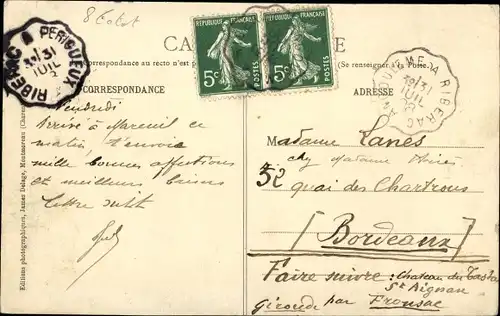 RIBERAC A PERIGUEUX
31
JUIL
REPUBLIQUE FRANÇAISE
5c POSTES
REPUBLIQUE FRANÇAISE
5c POSTES
ANGOULEME A RIBERAC
31
JUIL
CA
E
Correspondance au recto n'est
(Se renseigner à la Poste.)
CORRESPONDANCE
ADRESSE
Vendredi
Arrivé à Mareuil ce
matin, t'envoie
mille bonnes affections
et meilleurs baisers
Lettre suit
Madame Lanes
chez Madame
52 quai des Chartrons
[Bordeaux]
Faire suivre: Chateau du
St Aignan
Gironde par Fronsac
Editions photographiques, James Delage, Montmoreau